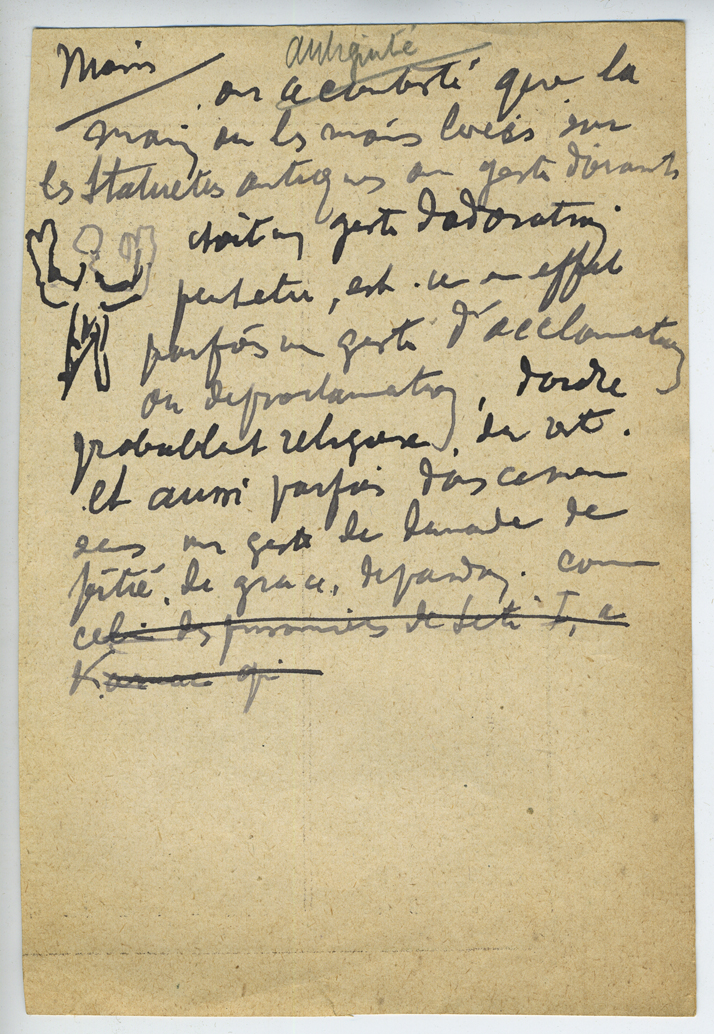 Mains
antiquité
on a contesté que la
main ou les mains levées sur
les statuettes antiques en geste d'orants
était un geste d'adoration
peutetre, est-ce en effet
parfois un geste d'acclamation
ou de proclamation, d'ordre
probablet religieux,
Et aussi parfois dans
un geste de demande de
pitié, de grace, de pardon. comme
celui des prisonniers de Seti I, a
Karnac qi